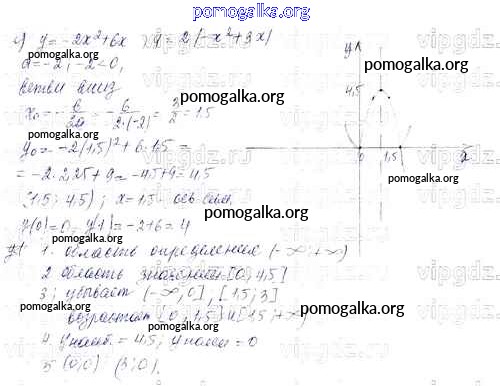 pomogalka.org
в) y = -2x²+6x y = 2(-x²+3x)
a = -2, -2<0,
ветви вниз
x₀ = -b/2a = -6/2·(-2) = 3/2 = 1.5
y₀ = -2(1,5)²+6·1,5 =
= -2·2,25+9 = -4,5+9 = 4,5
(1,5; 4,5); x = 1,5 - ось сим.
y(0) = 0, y(1) = -2+6 = 4
1. область определения (-∞; +∞)
2 область значений [0; 4,5]
3. убывает (-∞; 0], [1,5; 3]
возрастает [0; 1,5] и [1,5; +∞)
4. y наиб. = 4,5; y наим = 0
5 (0;0) (3;0).
y
4,5
0 1,5
pomogalka.org
pomogalka.org
pomogalka.org
pomogalka.org
pomogalka.org
pomogalka.org
pomogalka.org
pomogalka.org
pomogalka.org